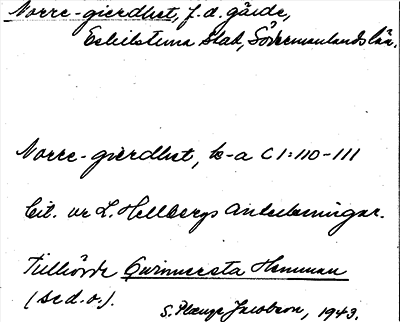 Norre-gierdhet, f.d. gärde,
Eskilstuna stad, Södermanlands län.
Norre-gierdhet, k-a C I:110-111
Cit. ur L. Hellbergs anteckningar.
Tillhörde Qvinnersta Hemman
(se d.o.).
S. Plænge Jacobson, 1943.